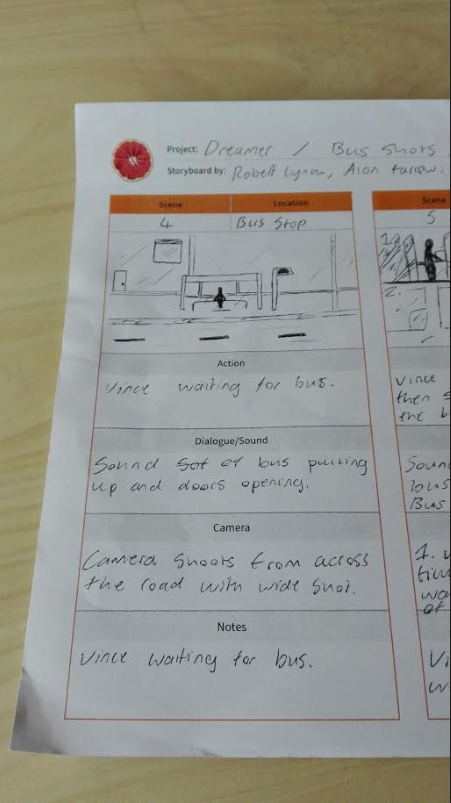 Project: Dreamer / Bus Shots
Storyboard by: Robert Lynn, Alan Farrow.
Scene Location
4 Bus Stop
Action
Vince waiting for bus.
Dialogue/Sound
Sound of bus pulling
up and doors opening.
Camera
Camera shoots from across
the road with wide shot.
Notes
Vince waiting for bus.
Scene
5
1.
2.
Vince
then
the
Bus
1.
of